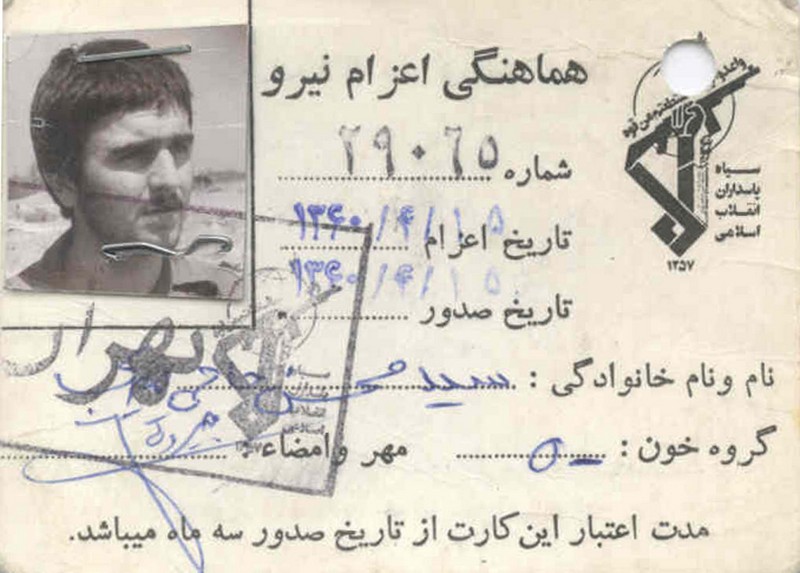 هماهنگی اعزام نیرو
شماره ۲۹۰۶۵
تاریخ اعزام ۱۳۶۰/۴/۱۵
تاریخ صدور ۱۳۶۰/۴/۱۵
نام ونام خانوادگی : سید محسن
گروه خون : O-
مهر وامضاء :
مدت اعتبار این کارت از تاریخ صدور سه ماه میباشد.
سپاه
پاسداران
انقلاب
اسلامی
۱۳۵۷
تهران